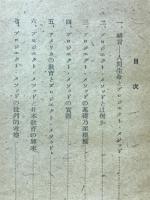 目次
一、緒言―人間生命とプロジェクト・メソッド
二、プロジェクト・メソッドとは何か
三、プロジェクト・メソッドの基礎乃至根據
四、プロジェクト・メソッドの實際
五、アメリカの教育とプロジェクト・メソッド
六、プロジェクト・メソッドと日本教育の將來
七、プロジェクト・メソッドの批判的考察